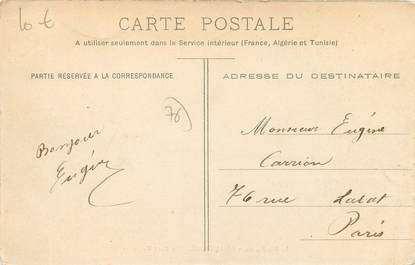 10 €
CARTE POSTALE
A utiliser seulement dans le Service intérieur (France, Algérie et Tunisie)
PARTIE RÉSERVÉE A LA CORRESPONDANCE
Bonjour
Eugène
76
ADRESSE DU DESTINATAIRE
Monsieur Eugène
Carrion
76 rue
Paris